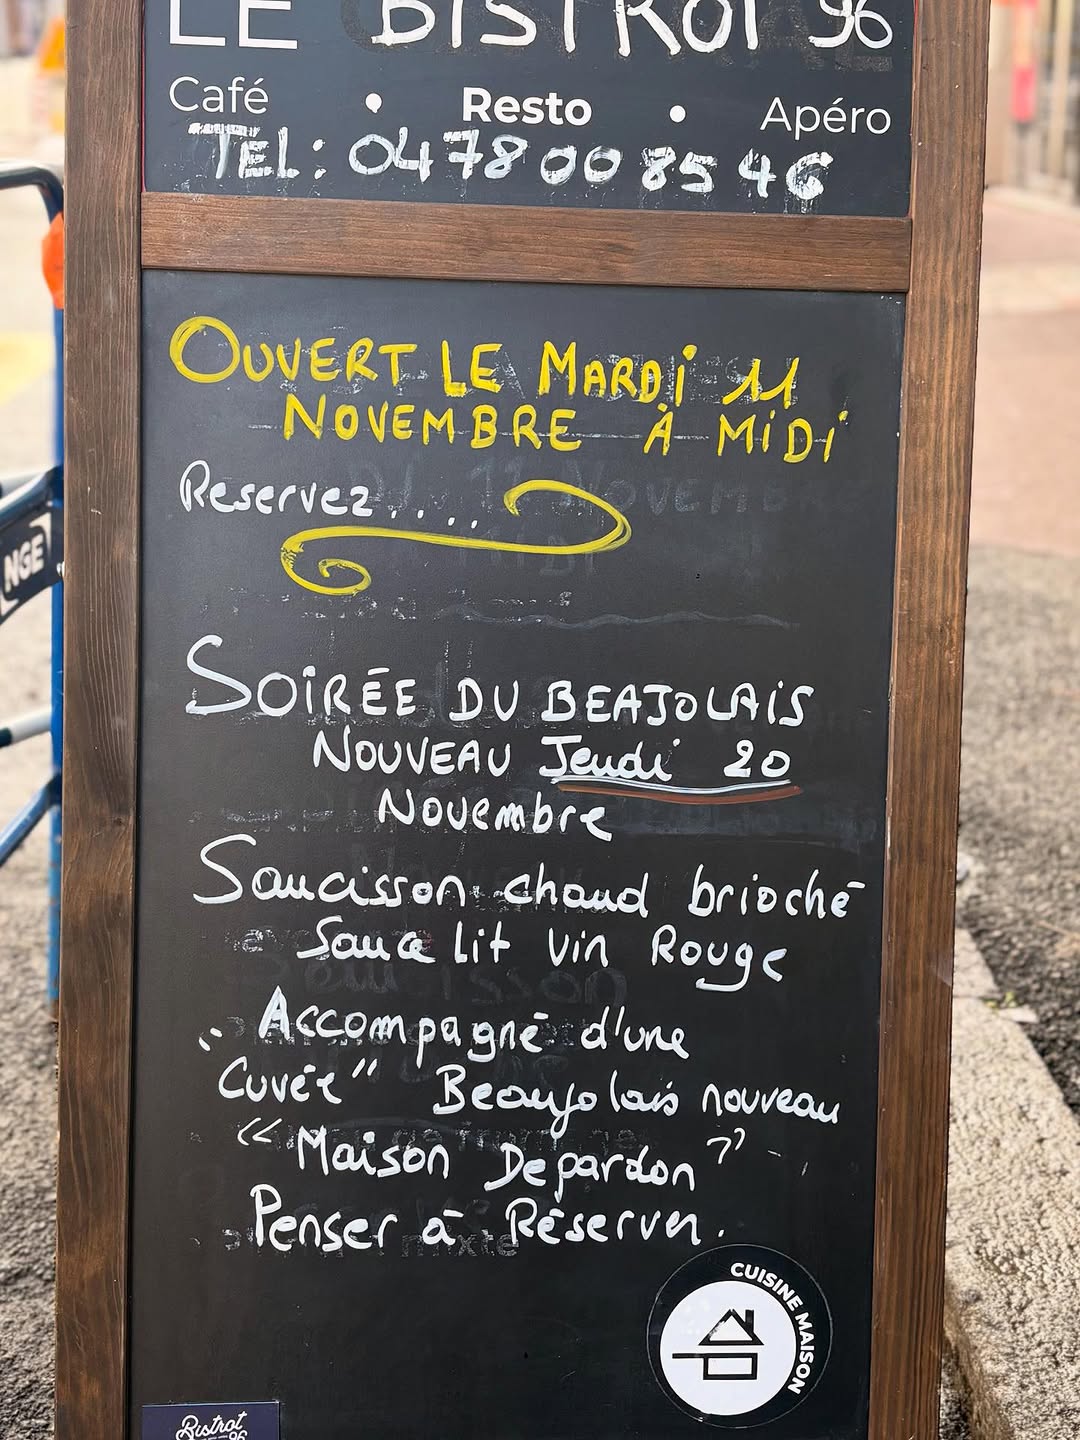 LE BISTROT 96
Café • Resto • Apéro
TEL: 04 78 00 85 46
OUVERT LE MARDI 11
NOVEMBRE À MIDI
Reservez.....
SOIRÉE DU BEAJOLAIS
NOUVEAU Jeudi 20
Novembre
Saucisson chaud brioché
Sauce lit vin Rouge
Accompagné d'une
"Cuvée" Beaujolais nouveau
"Maison Depardon"
Penser à Réserver.
CUISINE MAISON
NGE
Bistrot
96